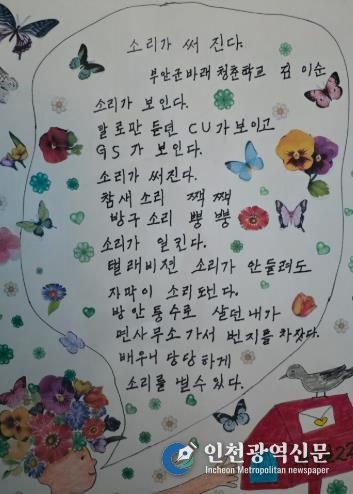 소리가 써 진다.
부안군바래 청춘학교 김 이순
소리가 보인다.
말로만 듣던 CU가 보이고
GS 가 보인다.
소리가 써진다.
참새 소리 짹 짹
방구 소리 뿡 뿡
소리가 일킨다.
텔래비젼 소리가 안들려도
자막이 소리된다.
방안통수로 살던 내가
면사무소가서 번지를 차잤다.
배우니 당당하게
소리를 낼수있다.
인천광역신문
Incheon Metropolitan newspaper